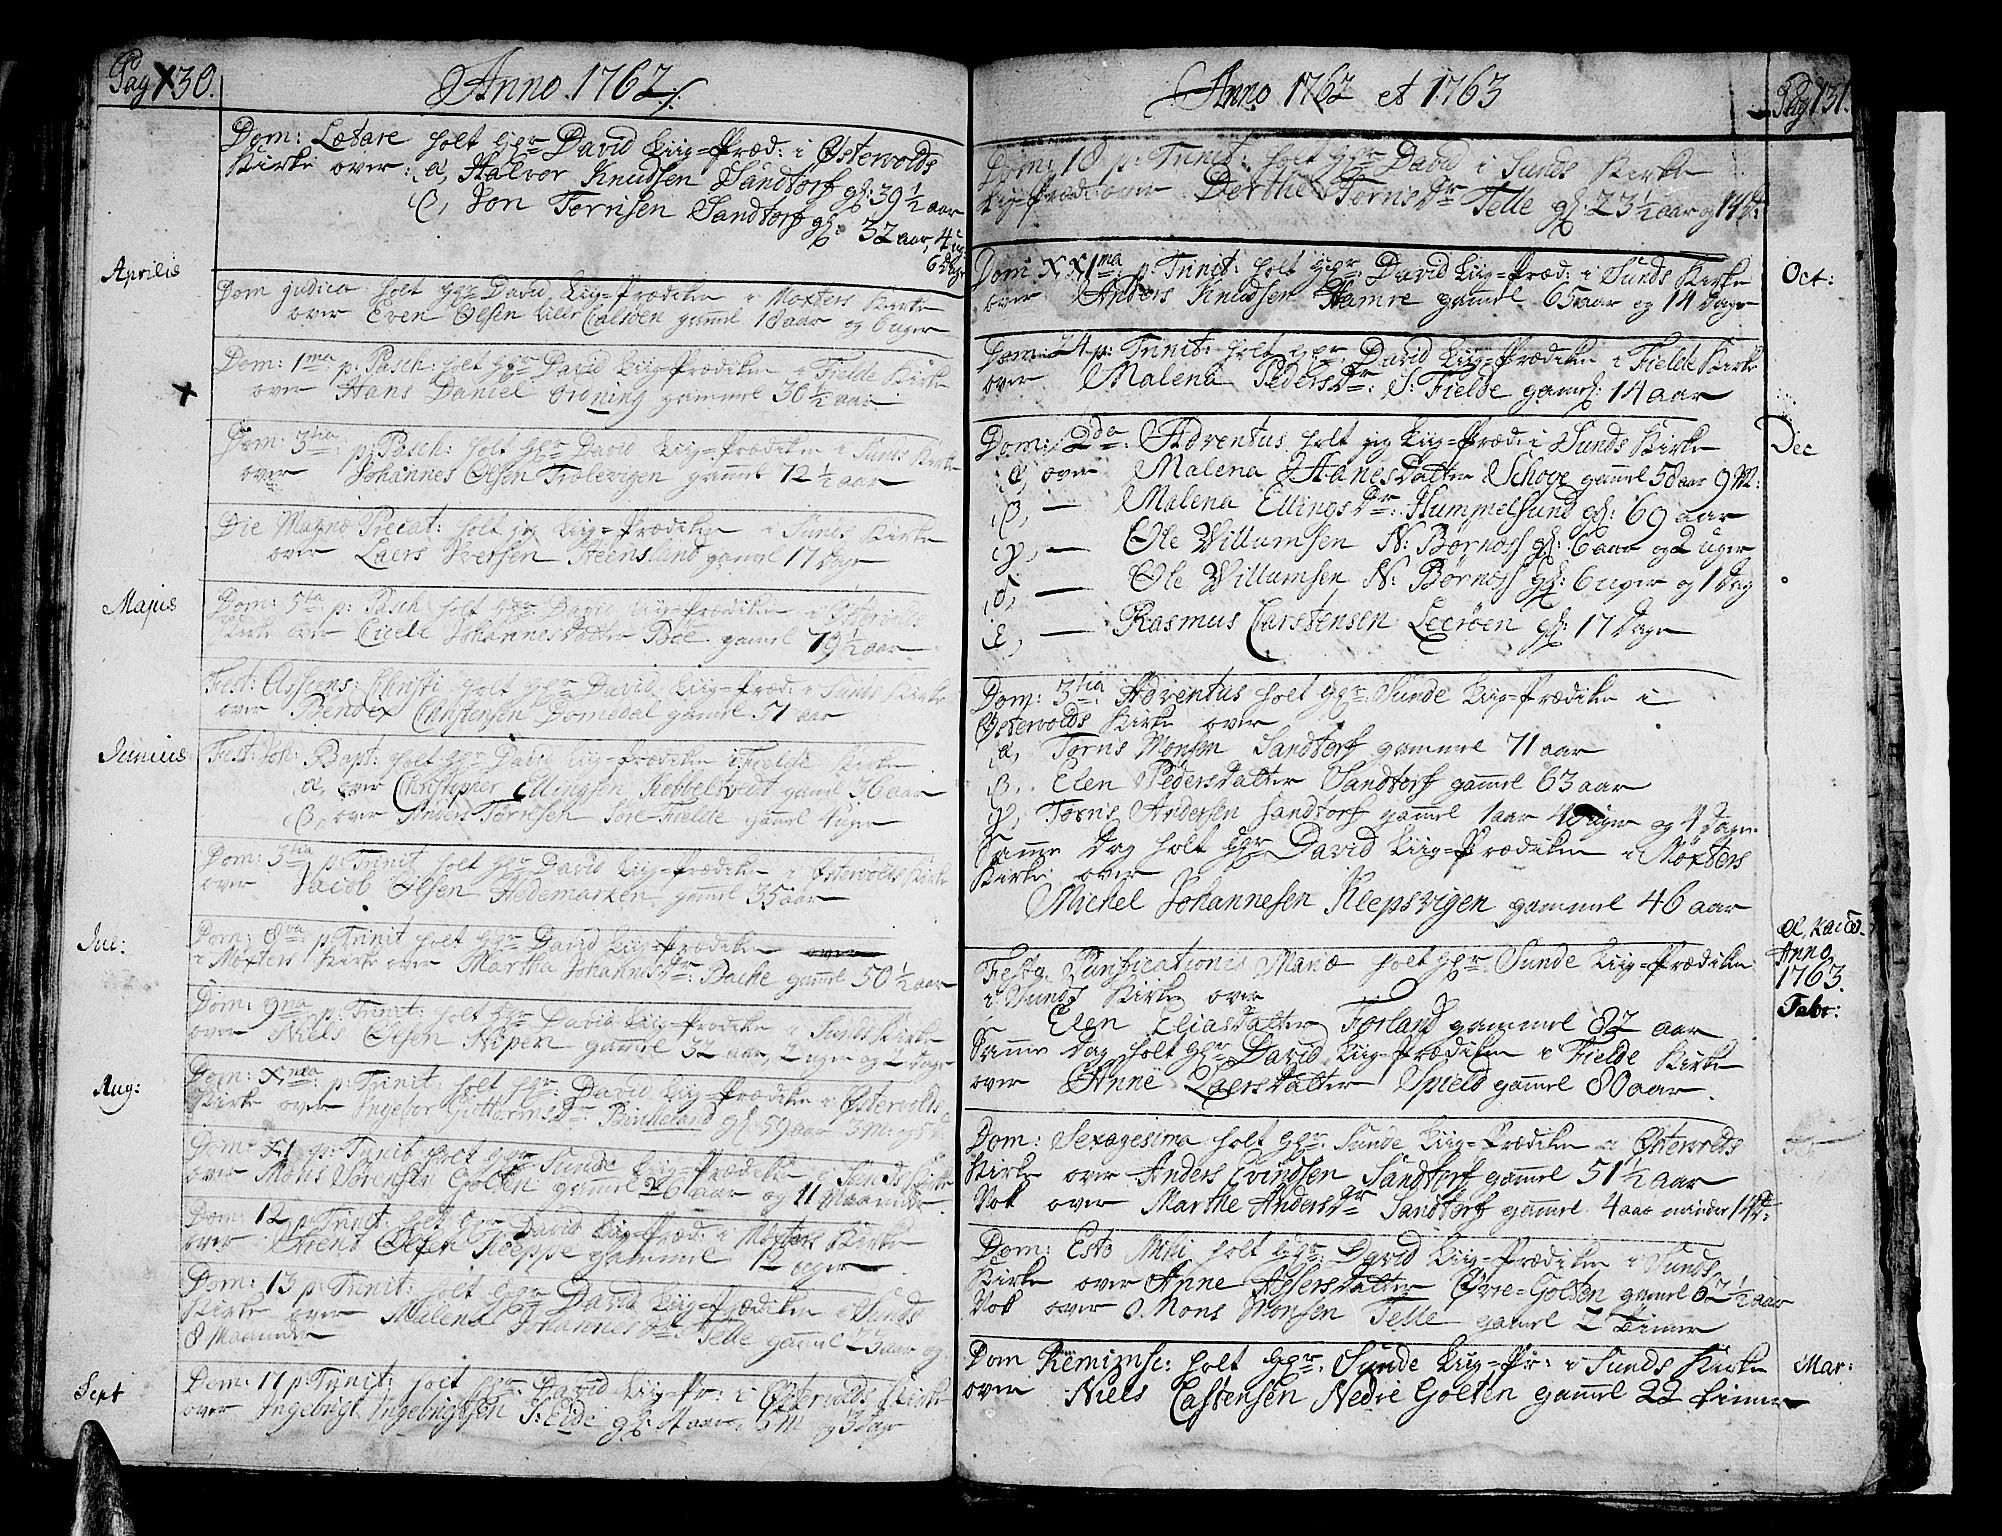 Pag 130.
Anno 1762
Dom: Lætare holt Hgr David Liig=Præd: i Østervolds
Kirke over: α, Halvor Knudsen Sandtorf gl: 39 1/2 aar
β, Jon Tornisen Sandtorf gl: 32 aar, 4
Aprilis
Dom Judica holt Hgr David Liig=Prædiken i Møxters Kirke
over Even Olsen Lille gammel 18 aar og 6 uger
Dom: 1ma p: Pasch: holt Hgr David Liig=Prædiken i Fielde Kirke
over Hans Daniel gammel 30 1/2 aar
Dom: 3tia p: Pasch: holt Hgr David Liig=Prædiken i Sunds Kirke
over Johannes Olsen Trælevigen gammel 12 1/2 aar
Die Magno Precat: holt jeg Liig=Prædiken i Sunds Kirke
over Laers Iversen Steensland gammel 17 Dage
Majus
Dom: 5ta p: Pasch holt Hgr David Liig=Prædiken i Østervolds
Kirke over Johannesdatter Boe gammel 79 1/2 aar
Fest: Ascens: Christi holt Hgr David Liig=Præd: i Sunds Kirke
over Bendex Christensen Domedal gammel 51 aar
Junius
Fest: Joh: Bapt: holt Hgr David Liig=Prædiken i Fielde Kirke
α, over Christopher Ellingsen Kobbeltvedt gammel 56 aar
β, over Anders Tornisen Søre=Fielde gammel 4 uger
Dom: 3tia p: Trinit holt Hgr David Liig=Prædiken i Østervolds Kirke
over Jacob Olsen Hedemarken gammel 35 aar
Jul:
Dom: 8va p: Trinit holt Hgr David Liig=Prædiken
i Møxters Kirke over Martha Johannesdr: Bache gammel 50 1/2 aar
Dom: 9na p: Trinit: holt Hgr David Liig=Prædiken i Sunds Kirke
over Niels Olsen Nipen gammel 32 aar, 2 uger og 2 Dage
Aug:
Dom: Xma: p: Trinit: holt Hgr David Liig=Prædiken i Østervolds
Kirke over Ingebor Guttormsdr: Birkeland gl: 59 aar 3 M: og 5 D:
Dom: XI p: Trinit holt Hgr Sunde Liig=Prædiken i Sunds Kirke
over Mons Sørensen Golten gammel 26 aar og 11 Maaneder
Dom: 12 p: Trinit: holt Hgr David Liig=Præd: i Møxters Kirke
over Arent Olsen Kleppe gammel 12 uger
Dom: 13 p: Trinit: holt Hgr David Liig=Prædiken i Sunds
Kirke over Malena Johannesdr: Telle gammel 23 aar og
8 Maaneder
Sept
Dom: 17 p: Trinit: holt Hgr: David Liig=Pr: i Østervolds Kirke
over Ingebrigt Ingebrigtsen S: Eide gl: aar, 6 M og 3 Dage
Anno 1762 et 1763
Pag 131.
Dom: 18 p: Trinit: holt Hgr David i Sunds Kirke
Liig=Præd: over Dorthe Tornisdr Telle gl: 23 1/2 aar og 14 D:
Dom: XX1ma: p: Trinit: holt Hgr: David Liig=Præd: i Sunds Kirke
over Anders Knudsen Hamre gammel 65 aar og 14 Dage
Oct:
Dom: 24 p: Trinit: holt Hgr David Liig=Prædiken i Fielde Kirke
over Malena Pedersdr: S: Fielde gammel: 14 aar
Dom: 2da: Adventus holt jeg Liig=Præd: i Sunds Kirke
Dec
α, over Malena Hanesdatter Schoge gammel 58 aar 9 M:
β, — Malena Ellingsdr: Hummelsund gl: 69 aar
γ, — Ole Willumsen N: Børnøss gl: 6 aar og 2 uger
δ, — Ole Willumsen N: Børnøss gl: 6 uger og 1 Dag
ε, — Rasmus Carstensen Leerøen gl: 17 Dage
Dom: 3tia Adventus holt Hgr: Sunde Liig=Prædiken i
Østervolds Kirke over
α, Tornis Monsen Sandtorf gammel 71 aar
β, Elen Pedersdatter Sandtorf gammel 63 aar
γ, Tornis Andersen Sandtorf gammel 1 aar uger og 4 Dage
Samme Dag holt Hgr David Liig=Prædiken i Møxters
Kirke over
Michel Johannesen Klepsvigen gammel 46 aar
Anno
1763.
Febr:
Festo Purificationis Mariæ holt Hgr: Sunde Liig=Prædiken
i Sunds Kirke over
Elen Eliasdatter Forland gammel 82 aar
Samme Dag holt Hgr David Liig=Prædiken i Fielde Kirke
over Anne Laersdatter Spield gammel 80 aar.
Dom: Sexagesima holt Hgr: Sunde Liig=Prædiken i Østervolds
Kirke over Anders Evindsen Sandtorf gammel 51 1/2 aar
Nok over Marthe Andersdr Sandtorf gammel 4 aar minder 14 D:
Dom: Esto Mihi holt Hgr: David Liig=Prædiken i Sunds
Kirke over Anne Assersdatter Øvre=Golten gammel 62 1/2 aar
Nok over Mons Monsen Telle gammel 2 timer
Dom Reminisc: holt Hgr: Sunde Liig=Pr: i Sunds Kirke
Mar:
over Niels Castensen Nedre Golten gammel 22 timer